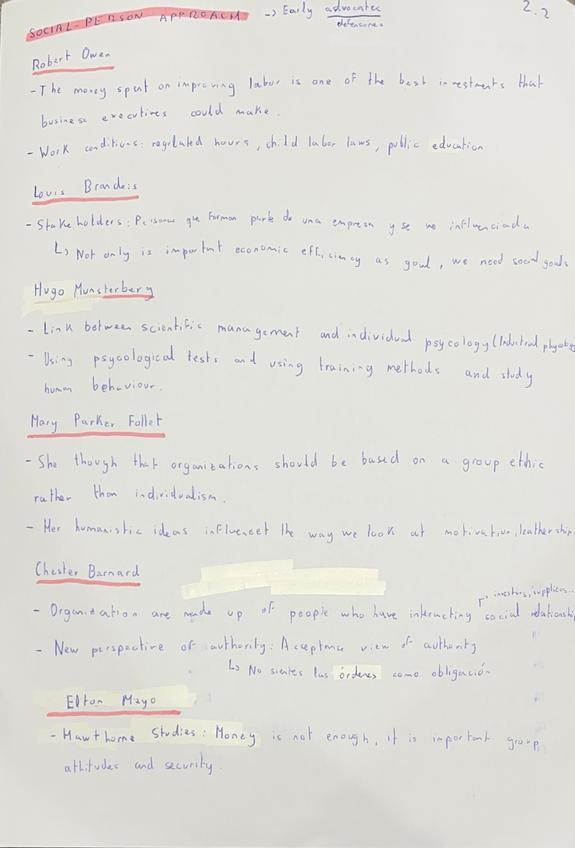 SOCIAL-PERSON APPROACH -> Early advocates 2.2
defensores
Robert Owen
- The money spent on improving labor is one of the best investments that
business executives could make.
- Work conditions: regulated hours, child labor laws, public education
Louis Brandeis
- Stakeholders: Persona que forman parte de una empresa y se ve influenciada
↳ Not only is important economic efficiency as goal, we need social goals
Hugo Munsterberg
- Link between scientific management and individual psycology (Industrial
- Using psycological tests and using training methods and study
human behaviour.
Mary Parker Follet
- She though that organizations should be based on a group ethic
rather than individualism.
- Her humanistic ideas influenceet the way we look at motivation, leathership.
Chester Barnard
investors, suppliers...
- Organization are made up of people who have interacting social relationship
- New perspective of authority: Acceptance view of authority
↳ No sientes las órdenes como obligación
Elton Mayo
- Hawthorne Studies: Money is not enough, it is important group
attitudes and security.